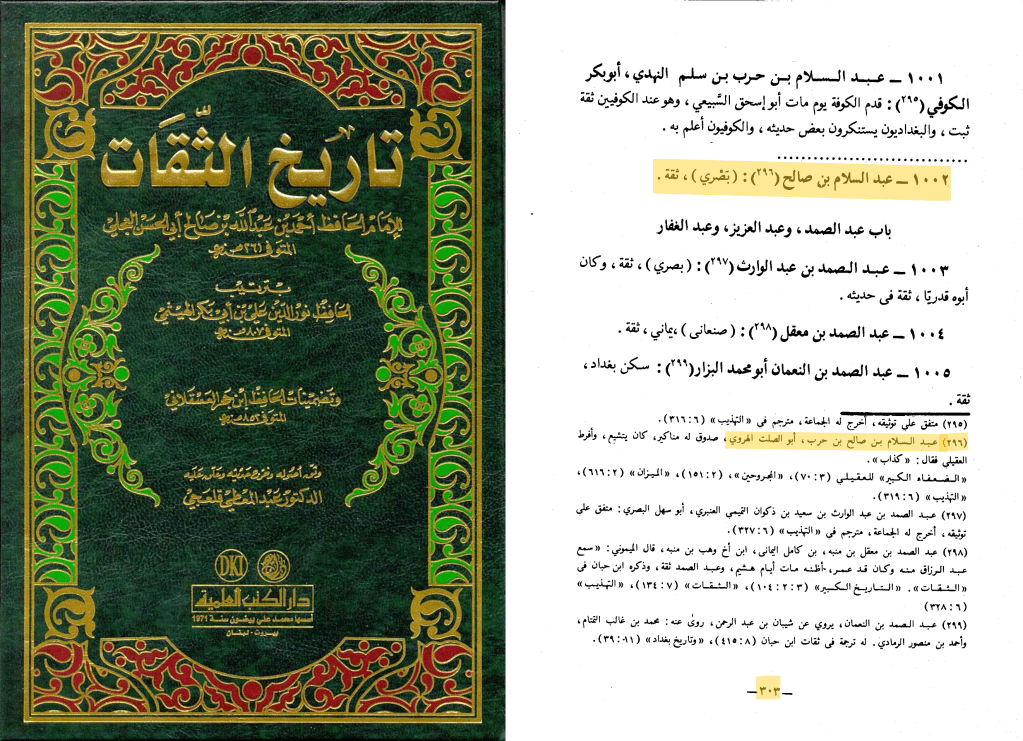 تاريخ الثقات
للإمام الحافظ أحمد بن عبد الله بن صالح أبي الحسن العجلي
المتوفى ٢٦١ هـ
بترتيب
الحافظ نور الدين علي بن أبي بكر الهيثمي
المتوفى ٨٠٧ هـ
وتضمينات الحافظ ابن حجر العسقلاني
المتوفى ٨٥٢ هـ
وثق أصوله وخرج حديثه وعلق عليه
الدكتور عبد المعطي قلعجي
DKI
دار الكتب العلمية
أسسها محمد علي بيضون سنة 1971
بيروت - لبنان
١٠٠١ ــ عبد السلام بن حرب بن سلم النهدي، أبوبكر
الكوفي (٢٩٥): قدم الكوفة يوم مات أبو إسحق السَّبيعي، وهو عند الكوفيين ثقة
ثبت، والبغداديون يستنكرون بعض حديثه، والكوفيون أعلم به.
................................
١٠٠٢ ــ عبد السلام بن صالح (٢٩٦): (بَصْري)، ثقة.
باب عبد الصمد، وعبد العزيز، وعبد الغفار
١٠٠٣ ــ عبد الصمد بن عبد الوارث (٢٩٧): (بصري)، ثقة، وكان
أبوه قدريًا، ثقة فى حديثه.
١٠٠٤ ــ عبد الصمد بن معقل (٢٩٨): (صنعانى)، يماني، ثقة.
١٠٠٥ ــ عبد الصمد بن النعمان أبو محمد البزار (٢٩٩): سكن بغداد،
ثقة.
(٢٩٥) متفق على توثيقه، أخرج له الجماعة، مترجم فى «التهذيب» (٦: ٣١٦).
(٢٩٦) عبد السلام بن صالح بن حرب، أبو الصلت الهروي، صدوق له مناكير، كان يتشيع، وأفرط
العقيلي فقال: «كذاب».
«الضعفاء الكبير» للعقيلي (٣: ٧٠)، «المجروحين»، (٢: ١٥١)، «الميزان» (٢: ٦١٦)،
«التهذيب» (٦: ٣١٩).
(٢٩٧) عبد الصمد بن عبد الوارث بن سعيد بن ذكوان التميمي العنبري، أبو سهل البصري: متفق على
توثيقه، أخرج له الجماعة، مترجم فى «التهذيب» (٦: ٣٢٧).
(٢٩٨) عبد الصمد بن معقل بن منبه، بن كامل اليمانى، ابن أخ وهب بن منبه، قال الميمونى: «سمع
عبد الرزاق منه وكان قد عمر، أظنه مات أيام هشيم، وعبد الصمد ثقة، وذكره ابن حبان فى
«الثقات». «التاريخ الكبير» (٣: ٢: ١٠٤)، «الثقات» (٧: ١٣٤)، «التهذيب»
(٦: ٣٢٨)
(٢٩٩) عبد الصمد بن النعمان، يروي عن شيبان بن عبد الرحمن، روى عنه: محمد بن غالب التمتام،
وأحمد بن منصور الرمادي. له ترجمة فى ثقات ابن حبان (٨: ٤١٥)، «وتاريخ بغداد» (١١: ٣٩).
ــ ٣٠٣ ــ